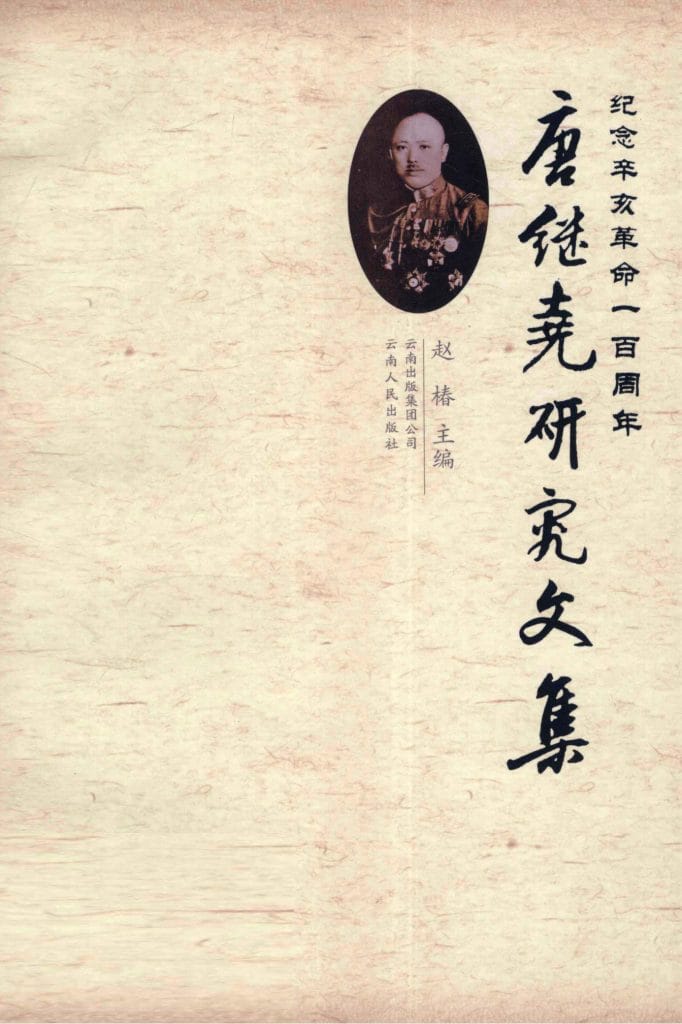 纪念辛亥革命一百周年
唐继尧研究文集
赵椿主编
云南出版集团公司
云南人民出版社